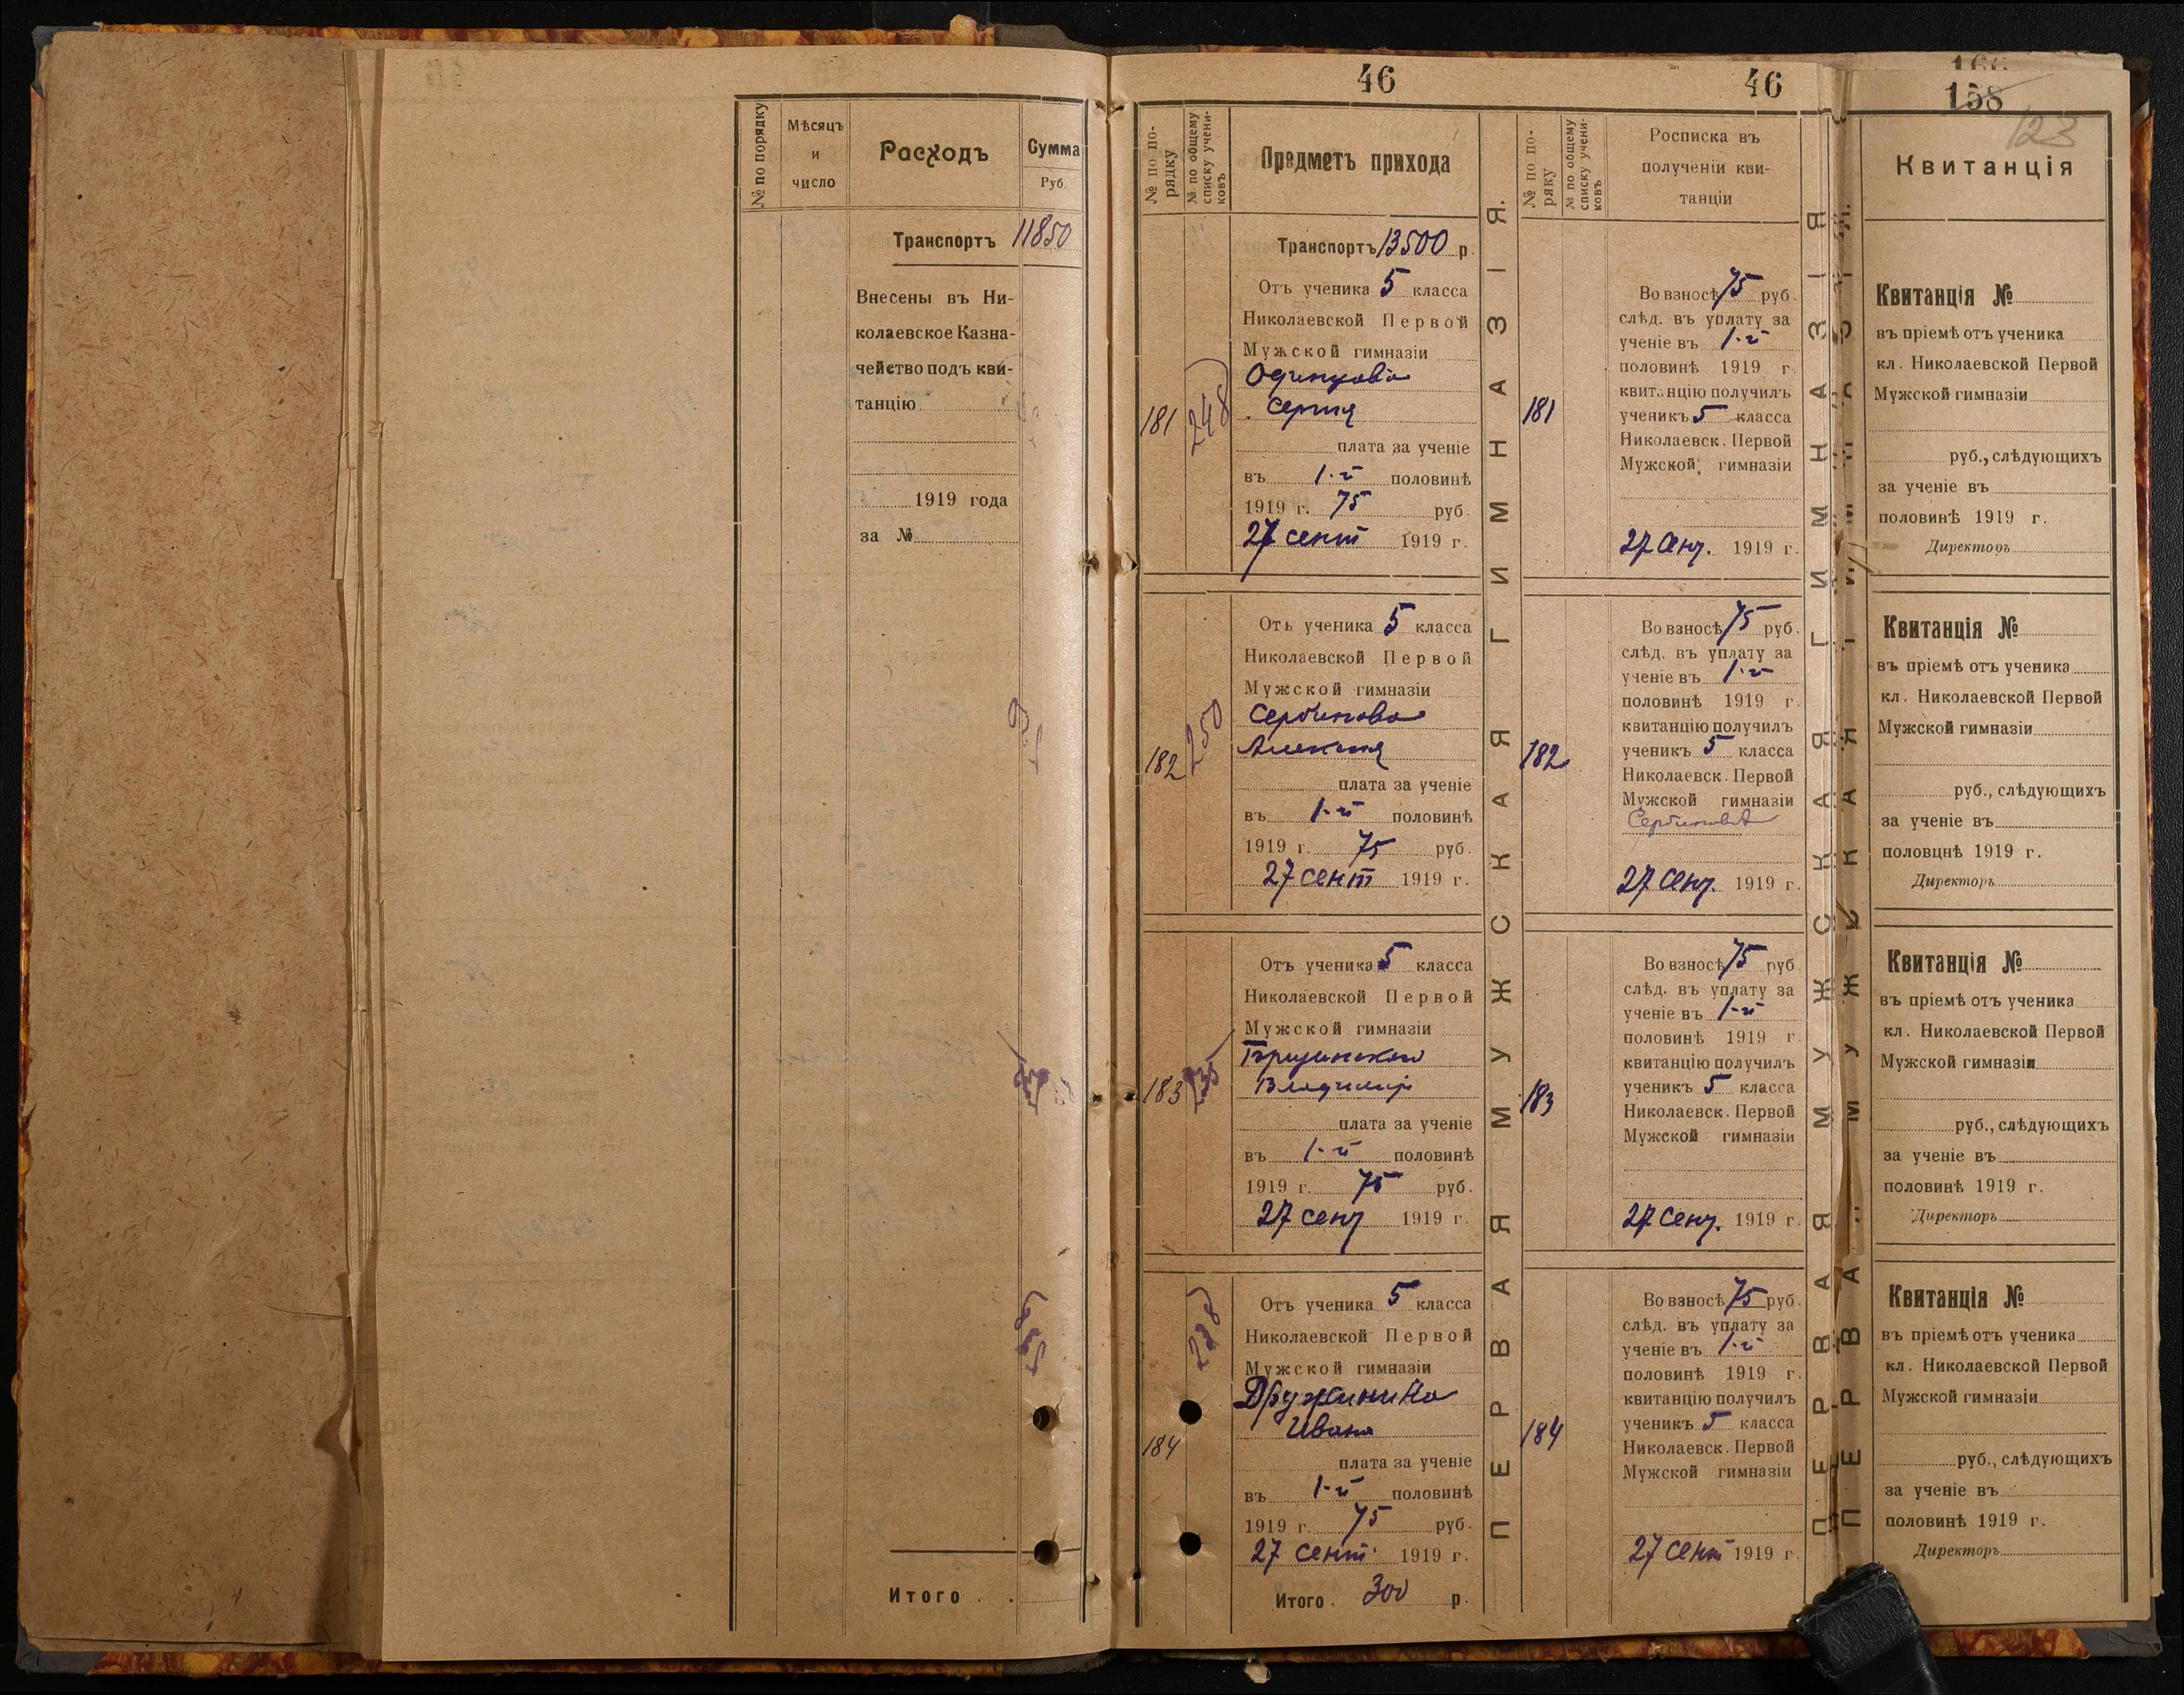 № по порядку
Мѣсяцъ
и
число
Расходъ
Сумма
Руб.
Транспортъ 11850
Внесены въ Ни-
колаевское Казна-
чейство подъ кви-
танцію
1919 года
за №
Итого . .
46
№ по по-
рядку
№ по общему
списку учени-
ковъ
Предметъ прихода
Транспортъ 13500 р.
181
248
Отъ ученика 5 класса
Николаевской Первой
Мужской гимназіи
Одинцова
Сергѣя
плата за ученіе
въ 1-й половинѣ
1919 г. 75 руб.
27 сент 1919 г.
182
250
Отъ ученика 5 класса
Николаевской Первой
Мужской гимназіи
Сербинова
Алексѣя
плата за ученіе
въ 1-й половинѣ
1919 г. 75 руб.
27 сент 1919 г.
183
Отъ ученика 5 класса
Николаевской Первой
Мужской гимназіи
Владимір
плата за ученіе
въ 1-й половинѣ
1919 г. 75 руб.
27 сент 1919 г.
184
228
Отъ ученика 5 класса
Николаевской Первой
Мужской гимназіи
Дружинина
Ивана
плата за ученіе
въ 1-й половинѣ
1919 г. 75 руб.
27 сент. 1919 г.
Итого . 300 р.
ПЕРВАЯ МУЖСКАЯ ГИМНАЗІЯ.
46
№ по по-
ряку
№ по общему
списку учени-
ковъ
Росписка въ
полученіи кви-
танціи
181
Во взносѣ 75 руб.
слѣд. въ уплату за
ученіе въ 1-й
половинѣ 1919 г.
квитанцію получилъ
ученикъ 5 класса
Николаевск. Первой
Мужской гимназіи
27 Сент. 1919 г.
182
Во взносѣ 75 руб.
слѣд. въ уплату за
ученіе въ 1-й
половинѣ 1919 г.
квитанцію получилъ
ученикъ 5 класса
Николаевск. Первой
Мужской гимназіи
Сербиновъ
27 Сент. 1919 г.
183
Во взносѣ 75 руб
слѣд. въ уплату за
ученіе въ 1-й
половинѣ 1919 г.
квитанцію получилъ
ученикъ 5 класса
Николаевск. Первой
Мужской гимназіи
27 Сент. 1919 г.
184
Во взносѣ 75 руб.
слѣд. въ уплату за
ученіе въ 1-й
половинѣ 1919 г.
квитанцію получилъ
ученикъ 5 класса
Николаевск. Первой
Мужской гимназіи
27 Сент 1919 г.
ПЕРВАЯ МУЖСКАЯ ГИМНАЗІЯ
158
123
Квитанція
Квитанція №
въ пріемѣ отъ ученика
кл. Николаевской Первой
Мужской гимназіи
руб., слѣдующихъ
за ученіе въ
половинѣ 1919 г.
Директоръ
Квитанція №
въ пріемѣ отъ ученика
кл. Николаевской Первой
Мужской гимназіи
руб., слѣдующихъ
за ученіе въ
половцнѣ 1919 г.
Директоръ
Квитанція №
въ пріемѣ отъ ученика
кл. Николаевской Первой
Мужской гимназіи
руб., слѣдующихъ
за ученіе въ
половинѣ 1919 г.
Директоръ
Квитанція №
въ пріемѣ отъ ученика
кл. Николаевской Первой
Мужской гимназіи
руб., слѣдующихъ
за ученіе въ
половинѣ 1919 г.
Директоръ